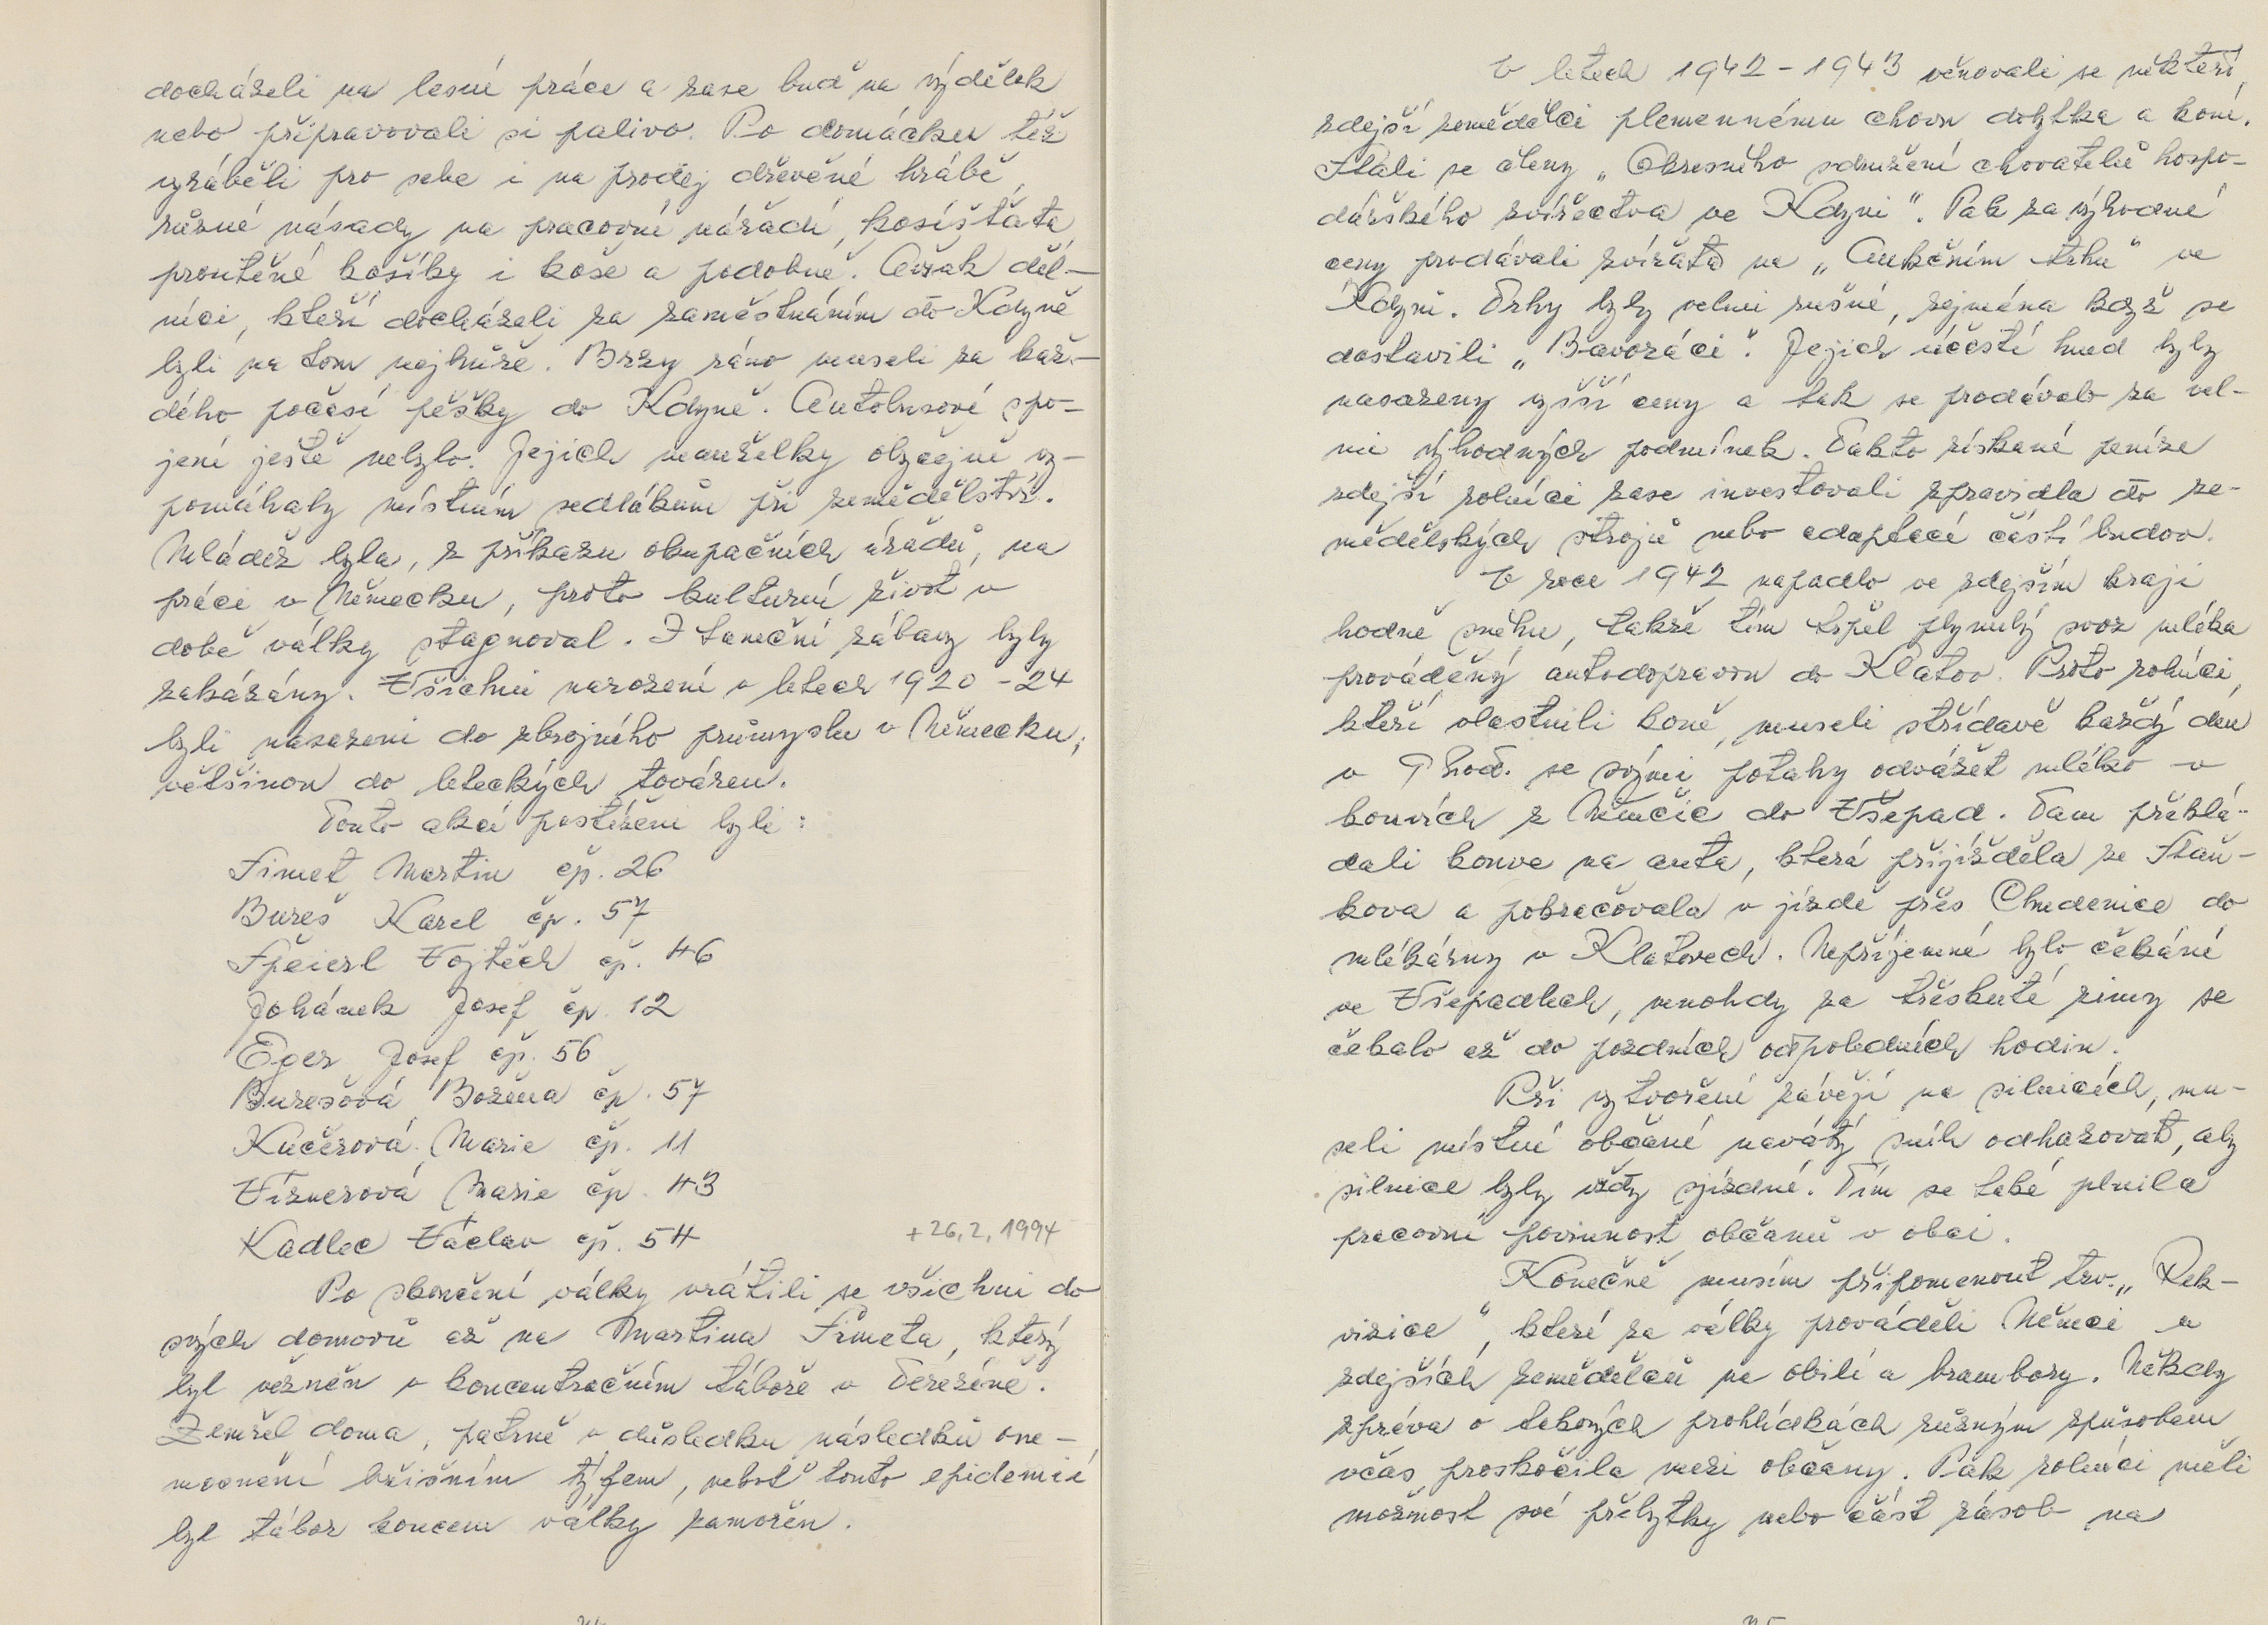 docházeli na lesní práce a zase buď na výdělek
nebo připravovali si palivo. Po domácku též
vyráběli pro sebe i na prodej dřevěné hrábě,
různé násady na pracovní nářadí, kosišťata
proutěné košíky i koše a podobně. Avšak děl-
níci, kteří docházeli za zaměstnáním do Kdyně
byli na tom nejhůře. Brzy ráno museli za kaž-
dého počasí pěšky do Kdyně. Autobusové spo-
jení ještě nebylo. Jejich manželky obyčejně vy-
pomáhaly místním sedlákům při zemědělství.
Mládež byla, z příkazu okupačních úřadů, na
práci v Německu, proto kulturní život v
době války stagnoval. I taneční zábavy byly
zakázány. Všichni narození v letech 1920 - 24
byli nasazeni do zbrojního průmyslu v Německu,
většinou do leteckých továren.
Touto akcí postiženi byli:
Simet Martin čp. 26
Bureš Karel čp. 57
Špeierl Vojtěch čp. 46
Johánek Josef čp. 12
Eger Josef čp. 56
Burešová Božena čp. 57
Kučerová Marie čp. 11
Víznerová Marie čp. 43
Kadlec Václav čp. 54 + 26.2.1994
Po skončení války vrátili se všichni do
svých domovů až na Martina Šimeta, který
byl vězněn v koncentračním táboře v Terezíně.
Zemřel doma, patrně v důsledku následků one-
mocnění břišním týfem, neboť touto epidemií
byl tábor koncem války zamořen.
V letech 1942 - 1943 věnovali se někteří
zdejší zemědělci plemennému chovu dobytka a koní.
Stali se členy „Okresního sdružení chovatelů hospo-
dářského zvířectva ve Kdyni". Pak za výhodné
ceny prodávali zvířata na „Aukčním trhu" ve
Kdyni. Trhy byly velmi rušné, zejména když se
dostavili „Bavoráci". Jejich účastí hned byly
nasazeny vyšší ceny a tak se prodávalo za vel-
mi výhodných podmínek. Takto získané peníze
zdejší rolníci zase investovali zpravidla do ze-
mědělských strojů nebo adaptací částí budov.
V roce 1942 napadlo ve zdejším kraji
hodně sněhu, takže tím trpěl plynulý svoz mléka
prováděný autodopravou do Klatov. Proto rolníci,
kteří vlastnili koně, museli střídavě každý den
v 9 hod. se svými potahy odvážet mléko v
konvích z Němčic do Všepad. Tam překlá-
dali konve na auta, která přijížděla ze Staň-
kova a pokračovala v jízdě přes Chudenice do
mlékárny v Klatovech. Nepříjemné bylo čekání
ve Všepadlech, mnohdy za třeskuté zimy se
čekalo až do pozdních odpoledních hodin.
Při vytvoření závějí na silnicích, mu-
seli místní občané navátý sníh odhazovat, aby
silnice byly vždy sjízdné. Tím se také plnila
pracovní povinnost občanů v obci.
Konečně musím připomenout tzv. „Rek-
vizice", které za války prováděli Němci u
zdejších zemědělců na obilí a brambory. Někdy
zpráva o takových prohlídkách různým způsobem
včas proskočila mezi občany. Pak rolníci měli
možnost své přebytky nebo část zásob na